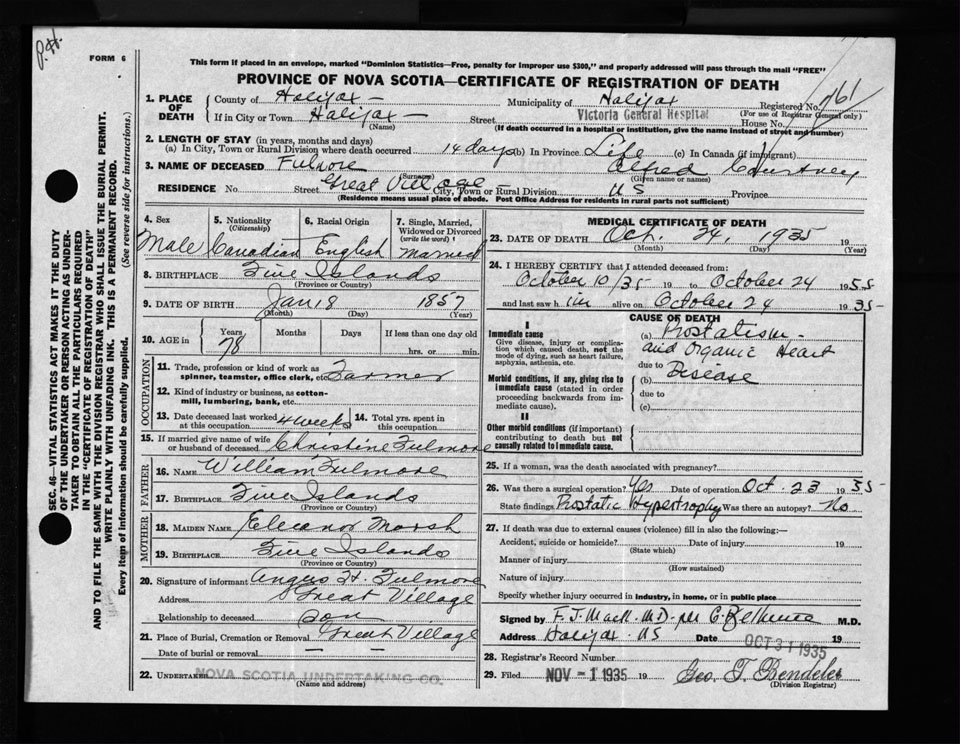 P.H.
FORM 6
This form if placed in an envelope, marked "Dominion Statistics—Free, penalty for improper use $300," and properly addressed will pass through the mail "FREE"
PROVINCE OF NOVA SCOTIA—CERTIFICATE OF REGISTRATION OF DEATH
1. PLACE OF DEATH County of Halifax Municipality of Halifax Registered No. 761
(For use of Registrar General only)
If in City or Town Halifax Street Victoria General Hospital House No.
(Name) (If death occurred in a hospital or institution, give the name instead of street and number)
2. LENGTH OF STAY (in years, months and days)
(a) In City, Town or Rural Division where death occurred 14 days (b) In Province Life (c) In Canada (if immigrant)
3. NAME OF DECEASED Fulmore Alfred Courtney
(Surname) (Given name or names)
RESIDENCE No. Street Great Village City, Town or Rural Division NS Province
(Residence means usual place of abode. Post Office Address for residents in rural parts not sufficient)
4. Sex Male
5. Nationality (Citizenship) Canadian
6. Racial Origin English
7. Single, Married, Widowed or Divorced (write the word) Married
8. BIRTHPLACE Five Islands
(Province or Country)
9. DATE OF BIRTH Jan 18 1857
(Month) (Day) (Year)
10. AGE in Years 78 Months Days If less than one day old
hrs. or min.
OCCUPATION
11. Trade, profession or kind of work as spinner, teamster, office clerk, etc. Farmer
12. Kind of industry or business, as cotton-mill, lumbering, bank, etc.
13. Date deceased last worked at this occupation 4 weeks 14. Total yrs. spent in this occupation
15. If married give name of wife or husband of deceased Christine Fulmore
FATHER
16. NAME William Fulmore
17. BIRTHPLACE Five Islands
(Province or Country)
MOTHER
18. MAIDEN NAME Eleanor Marsh
19. BIRTHPLACE Five Islands
(Province or Country)
20. Signature of informant Angus H. Fulmore
Address Great Village
Relationship to deceased son
21. Place of Burial, Cremation or Removal Great Village
Date of burial or removal — —
22. UNDERTAKER NOVA SCOTIA UNDERTAKING CO.
(Name and address)
MEDICAL CERTIFICATE OF DEATH
23. DATE OF DEATH Oct. 24, 1935 19
(Month) (Day) (Year)
24. I HEREBY CERTIFY that I attended deceased from:
October 10/35 19 to October 24 1935
and last saw him alive on October 24 1935
CAUSE OF DEATH
I
Immediate cause
Give disease, injury or complication which caused death, not the mode of dying, such as heart failure, asphyxia, asthenia, etc.
(a) Prostatism
and Organic Heart
due to
(b) Disease
Morbid conditions, if any, giving rise to immediate cause (stated in order proceeding backwards from immediate cause).
due to
(c)
II
Other morbid conditions (if important) contributing to death but not causally related to immediate cause.
25. If a woman, was the death associated with pregnancy?
26. Was there a surgical operation? Yes Date of operation Oct. 23 1935
State findings Prostatic Hypertrophy Was there an autopsy? No
27. If death was due to external causes (violence) fill in also the following:—
Accident, suicide or homicide? Date of injury 19
(State which)
Manner of injury
(How sustained)
Nature of injury
Specify whether injury occurred in industry, in home, or in public place
Signed by F. J. Mack. M.D. M.D.
Address Halifax. NS Date OCT 31 1935 19
28. Registrar's Record Number
29. Filed NOV -1 1935 19 Geo. T. Bendelei
(Division Registrar)
SEC. 46—VITAL STATISTICS ACT MAKES IT THE DUTY
OF THE UNDERTAKER OR PERSON ACTING AS UNDER-
TAKER TO OBTAIN ALL THE PARTICULARS REQUIRED
IN THE "CERTIFICATE OF REGISTRATION OF DEATH"
AND TO FILE THE SAME WITH THE DIVISION REGISTRAR WHO SHALL ISSUE THE BURIAL PERMIT.
WRITE PLAINLY WITH UNFADING INK. THIS IS A PERMANENT RECORD.
Every item of information should be carefully supplied. (See reverse side for instructions.)